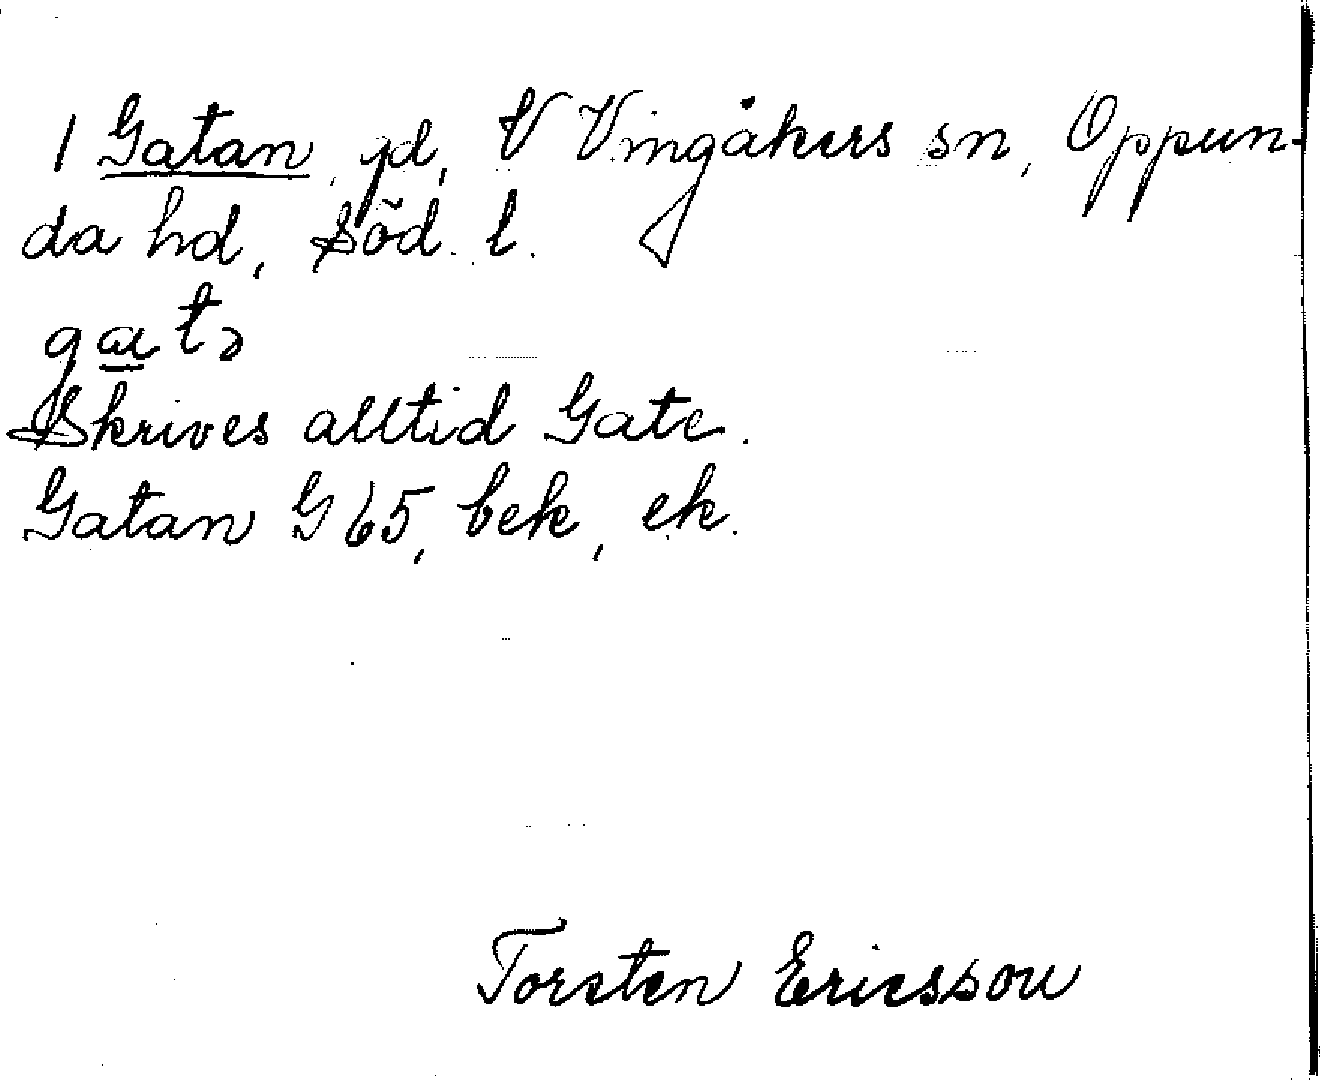 1 Gatan, gd, V Vingåkers sn, Oppun-
da hd, Söd. l.
gɑtə
Skrives alltid Gate.
Gatan G 65, bek, ek.
Torsten Ericsson